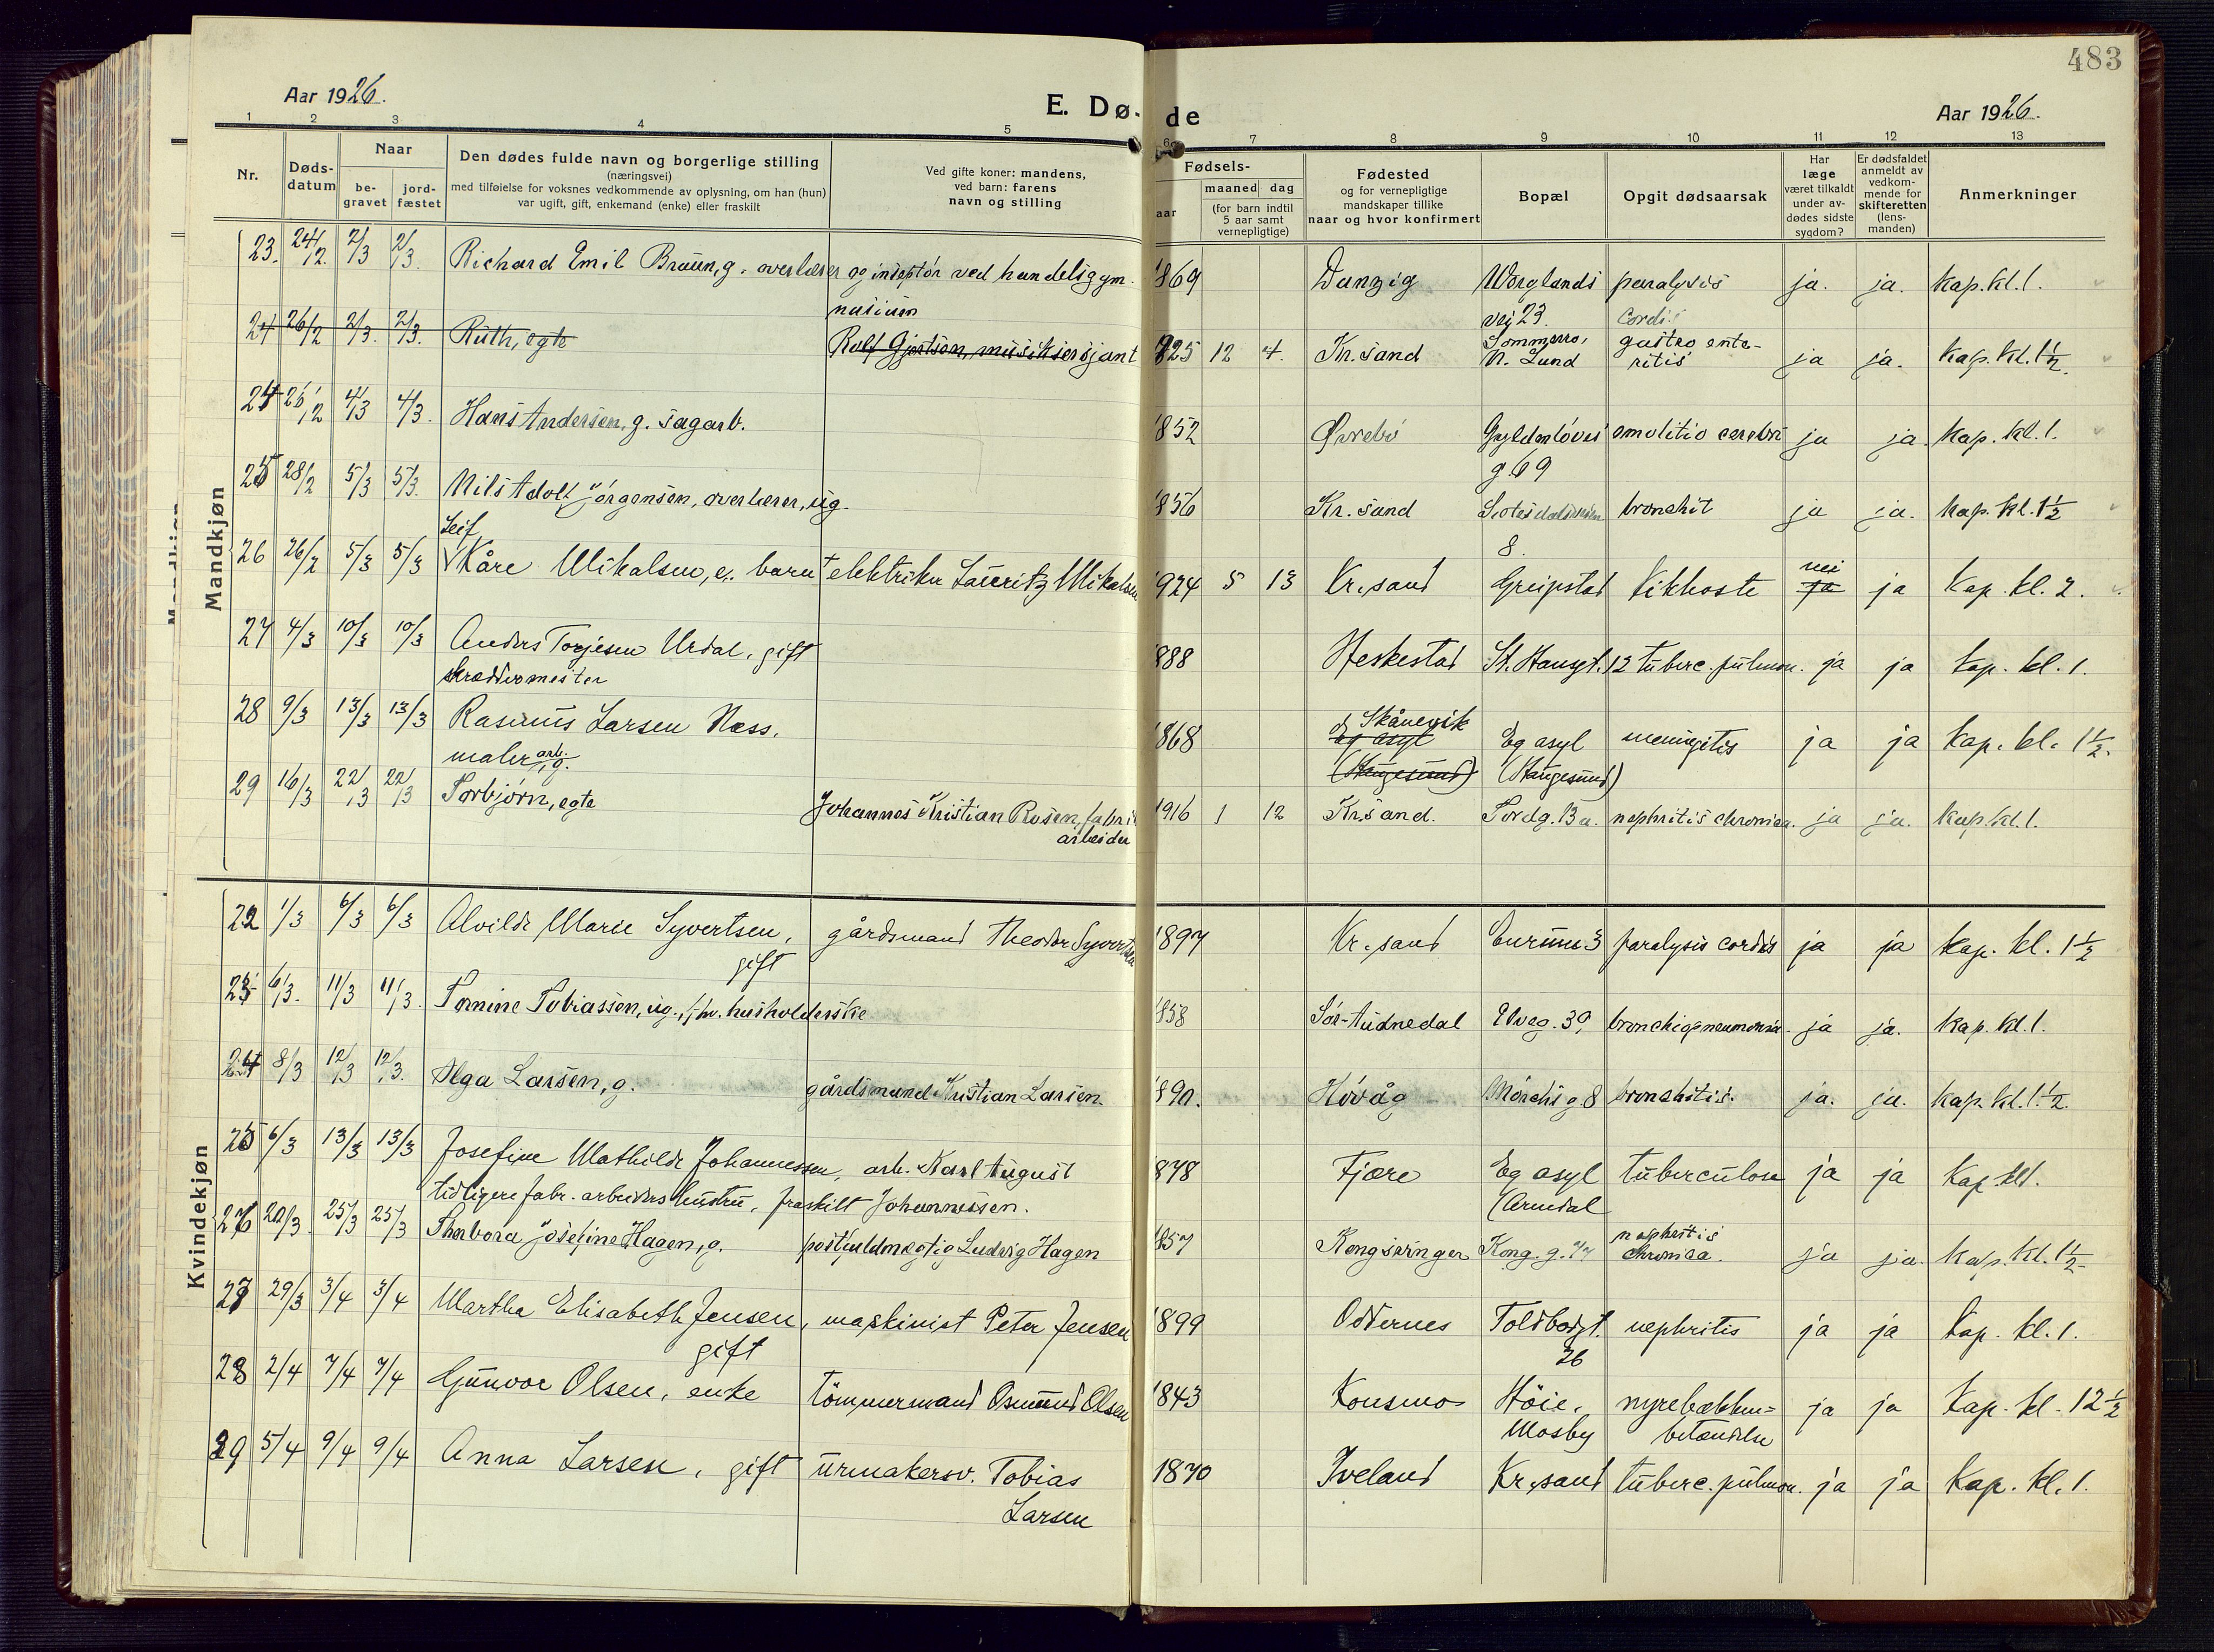 483
Aar 1926.
E. Dø-de
Aar 1926.
1 2 3 4 5 6 7 8 9 10 11 12 13
Nr.
Døds-
datum
Naar
be-
gravet
jord-
fæstet
Den dødes fulde navn og borgerlige stilling
(næringsvei)
med tilføielse for voksnes vedkommende av oplysning, om han (hun)
var ugift, gift, enkemand (enke) eller fraskilt
Ved gifte koner: mandens,
ved barn: farens
navn og stilling
Fødsels-
aar
maaned dag
(for barn indtil
5 aar samt
vernepligtige)
Fødested
og for vernepligtige
mandskaper tillike
naar og hvor konfirmert
Bopæl
Opgit dødsaarsak
Har
læge
været tilkaldt
under av-
dødes sidste
sygdom?
Er dødsfaldet
anmeldt av
vedkom-
mende for
skifteretten
(lens-
manden)
Anmerkninger
Mandkjøn
23. 24/2. 2/3 2/3. Richard Emil Braun, g. overlærer og inspektör ved handelsgym- 1869 Danzig Worglands paralysis ja. ja. Kap. kl. 1.
nasium vej 23. cordis
24 26/2 2/3. 2/3. Ruth, egte Rolf Gjertsen, musiksersjant 1925 12 4. Kr.sand Sommerro, gastro ente- ja ja. Kap. kl. 1½.
N. Lund ritis
24 26/2 4/3 4/3. Hans Andersen, g. sagarb. 1852 Øvrebö Gyldenlöves emolitio cerebri ja ja Kap. kl. 1.
g. 69
25 28/2 5/3 5/3. Nils Adolf Jörgensen, overlærer, ug. 1856 Kr.sand bronchit ja ja. Kap. kl. 1½
8.
Leif
26 26/2 5/3 5/3 Kåre Mikalsen, e. barn elektriker Lauritz Mikalsen 1924 5 13 Kr.sand Greipstad Kikhoste nei ja ja Kap. kl. 2.
27 4/3 10/3 10/3 Anders Torjesen Urdal, gift 1888 Heskestad St. Hansgt. 12 tuberc. pulmon. ja ja Kap. kl. 1.
skræddermester
28 9/3 13/3 13/3 Rasmus Larsen Næss, 1868 Skånevik Eg asyl Eg asyl meningitis ja ja Kap. kl. 1½.
maler arb. g. (Haugesund) (Haugesund)
29 16/3 22/3 22/3 Torbjörn, egte Johannes Kristian Rosen, fabrik 1916 1 12 Kr.sand. Tordg. 13 a. nephritis chronica. ja ja. Kap. kl. 1.
arbeider
Kvindekjøn
22 1/3 6/3 6/3 Alvilde Marie Syvertsen, gårdsmand Theodor Syvertsen 1897 Kr.sand 3 paralysis cordis ja ja Kap. kl. 1½
gift
23 6/3. 11/3 11/3. Tomine Tobiassen, ug., fhv. husholderske 1858 Sör-Audnedal Elveg. 39, bronchiopneumonia. ja ja. Kap. kl. 1.
24 8/3 12/3 12/3. Olga Larsen, g. gårdsmand Kristian Larsen. 1890. Hövåg Mörchs g. 8 bronchitis. ja. ja. Kap. kl. 1½.
25 6/3 13/3 13/3 Josefine Mathilde Johannessen, arb. Karl August 1878 Fjære Eg asyl tuberculose ja ja Kap. kl 1.
tidligere fabr. arbeiders hustru, fraskilt Johannessen. (Arendal
26 20/3. 25/3 25/3 Thorbora Josefine Hagen, g. postfuldmegtig Ludvig Hagen 1857 Kongsvinger Kong. g. nephritis chronica. ja ja. Kap. kl. 1½
27 29/3 3/4 3/4 Martha Elisabeth Jensen, maskinist Peter Jensen 1899 Oddernes Toldbodgt. nephritis ja ja Kap. kl. 1.
gift 26
28 2/4 7/4 7/4 Gunvor Olsen, enke tömmermand Osmund Olsen 1843 Konsmo Höie, nyrebækken- ja ja Kap. kl. 12½
Mosby betændelse
29 5/4 9/4 9/4 Anna Larsen, gift urmakersv. Tobias 1870 Iveland Kr.sand tuberc. pulmon. ja ja Kap. kl. 1.
Larsen